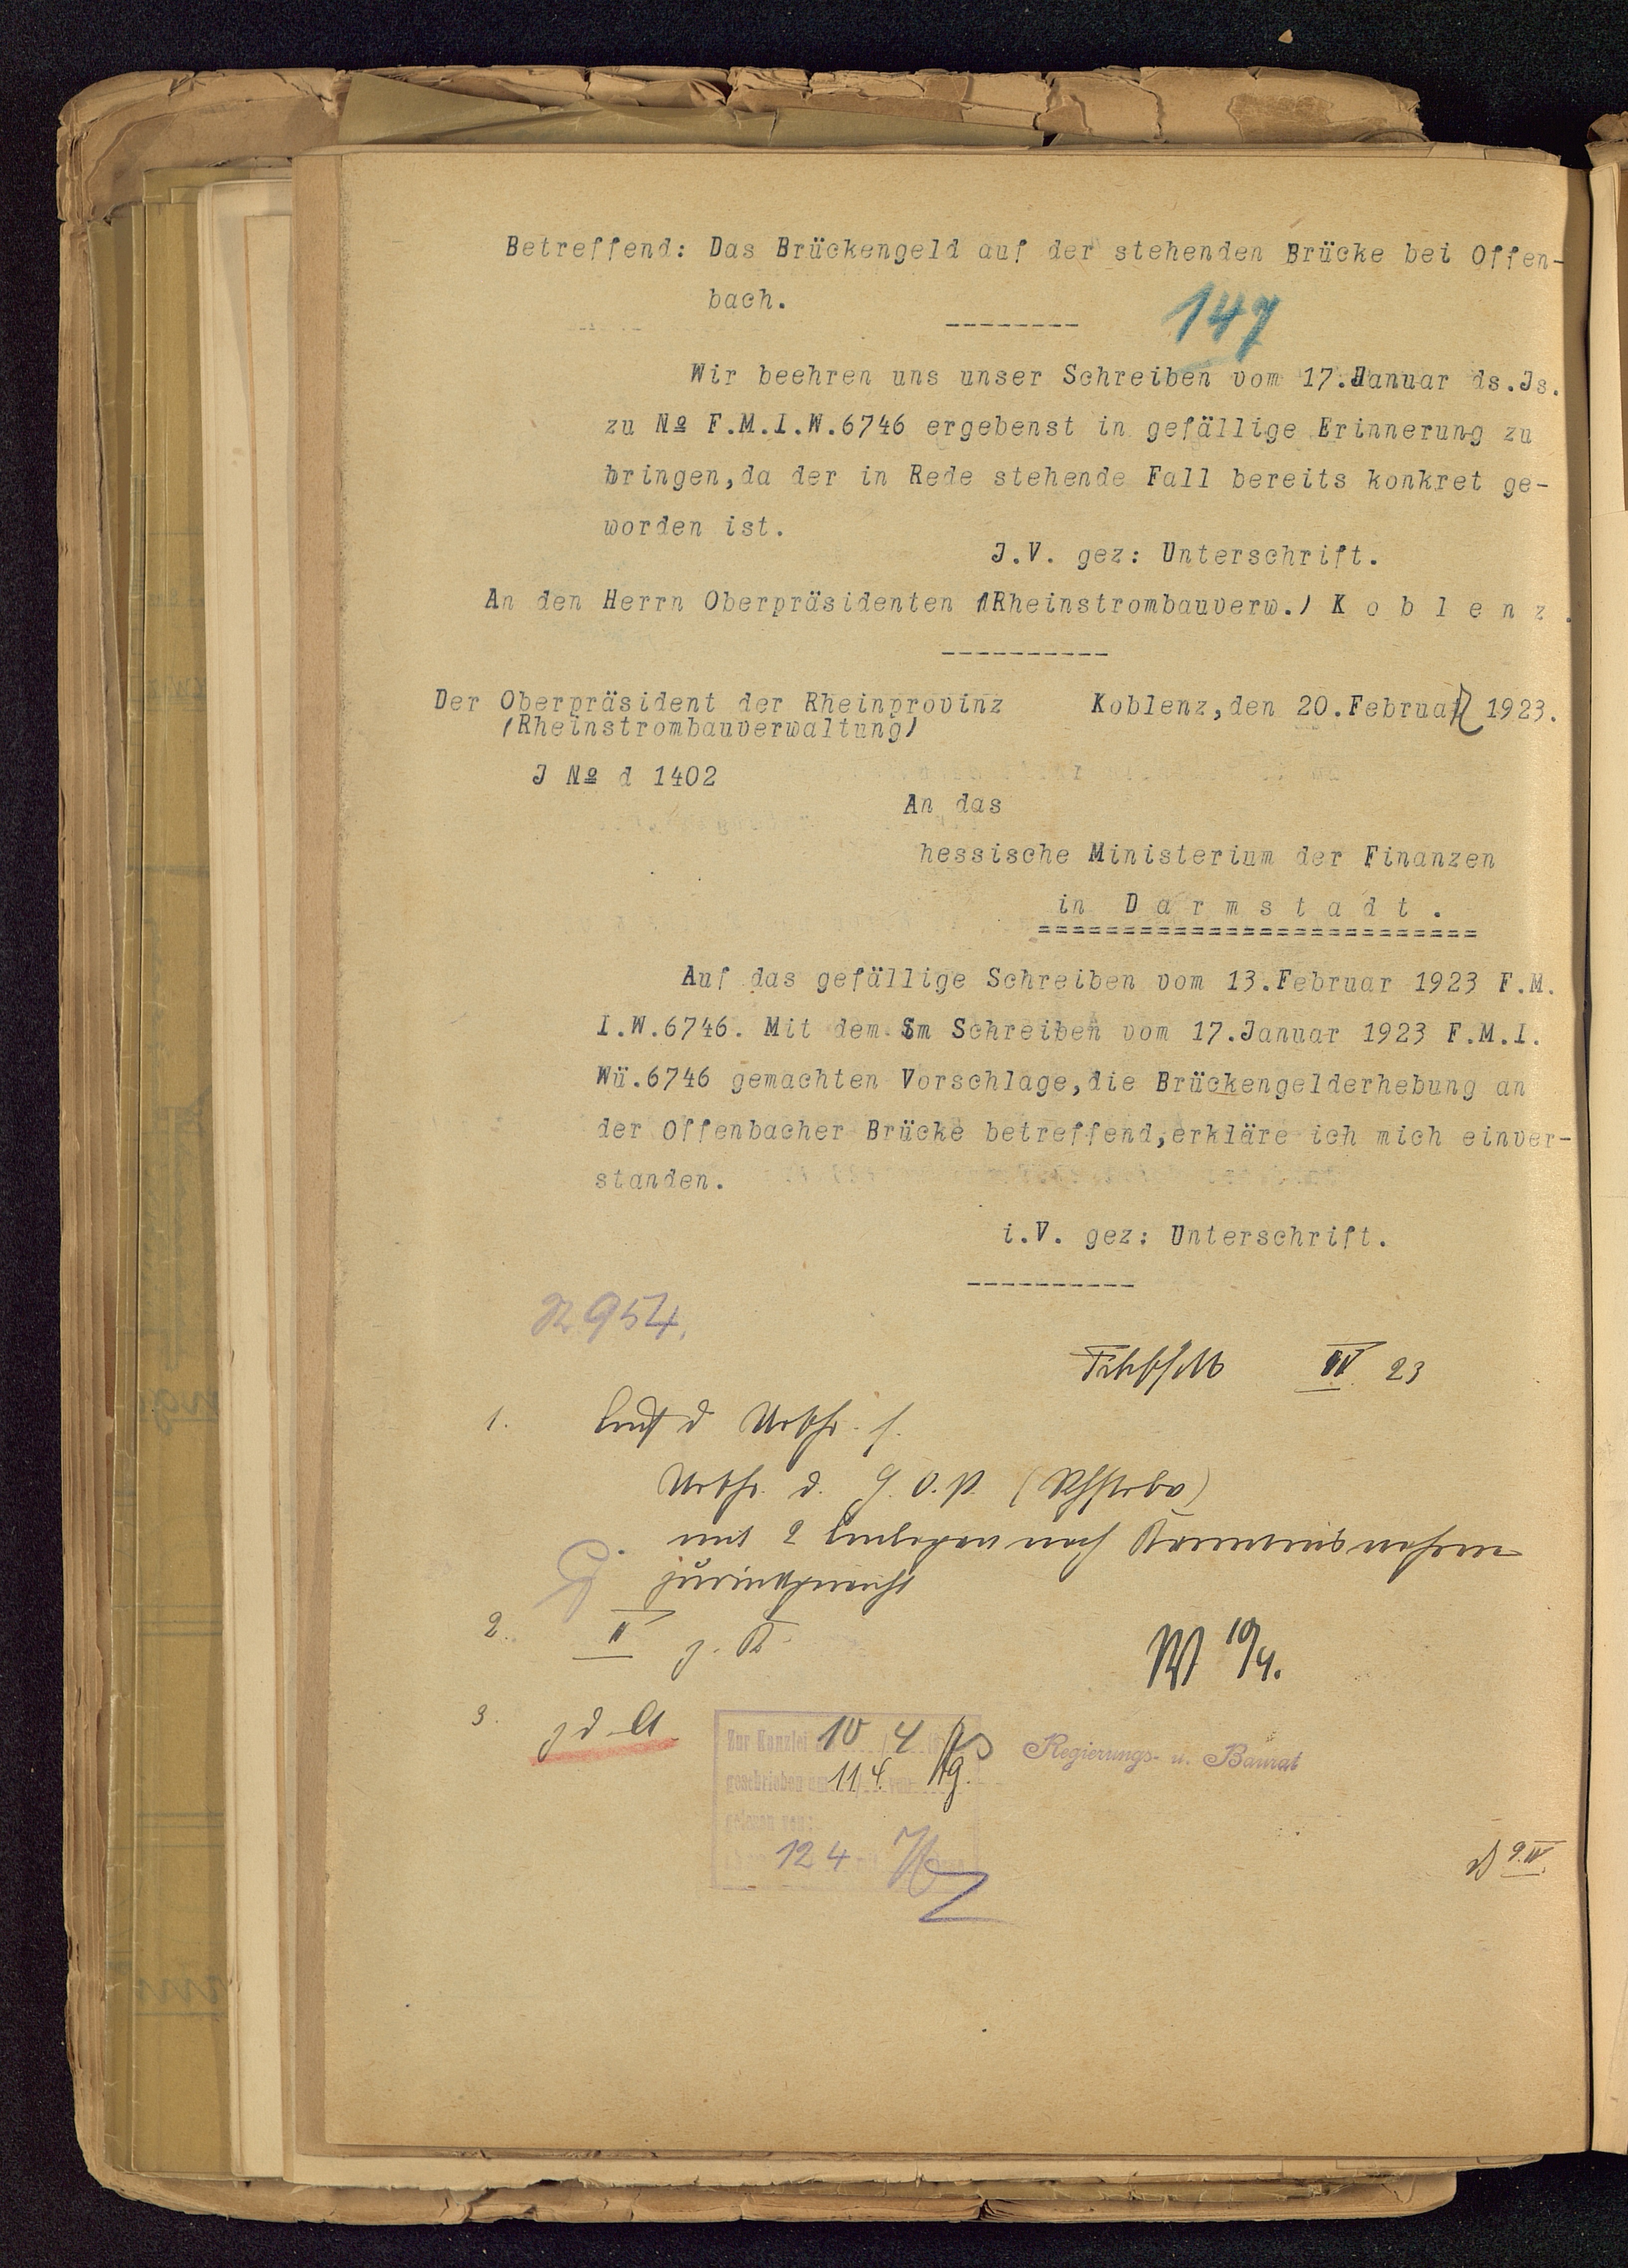 Betreffend: Das Brückengeld auf der stehenden Brücke bei Offen-
bach.
147
Wir beehren uns unser Schreiben vom 17.Januar ds.Js.
zu № F.M.I.W.6746 ergebenst in gefällige Erinnerung zu
bringen,da der in Rede stehende Fall bereits konkret ge-
worden ist.
J.V. gez: Unterschrift.
An den Herrn Oberpräsidenten /Rheinstrombauverw./ K o b l e n z.
Der Oberpräsident der Rheinprovinz
/Rheinstrombauverwaltung/
Koblenz,den 20.Februar 1923.
J № d 1402
An das
hessische Ministerium der Finanzen
in D a r m s t a d t .
Auf das gefällige Schreiben vom 13.Februar 1923 F.M.
I.W.6746. Mit dem im Schreiben vom 17.Januar 1923 F.M.I.
Wü.6746 gemachten Vorschlage,die Brückengelderhebung an
der Offenbacher Brücke betreffend,erkläre ich mich einver-
standen.
i.V. gez: Unterschrift.
954.
IV 23
1.
Urschr.
mit 2 Anlagen nach Kenntnisnahme
2. II z. K
10/4.
3. z d A
Zur Kanzlei 10 4
geschrieben am 11 4. von
gelesen von:
12 4
Regierungs- u. Baurat
9.IV.